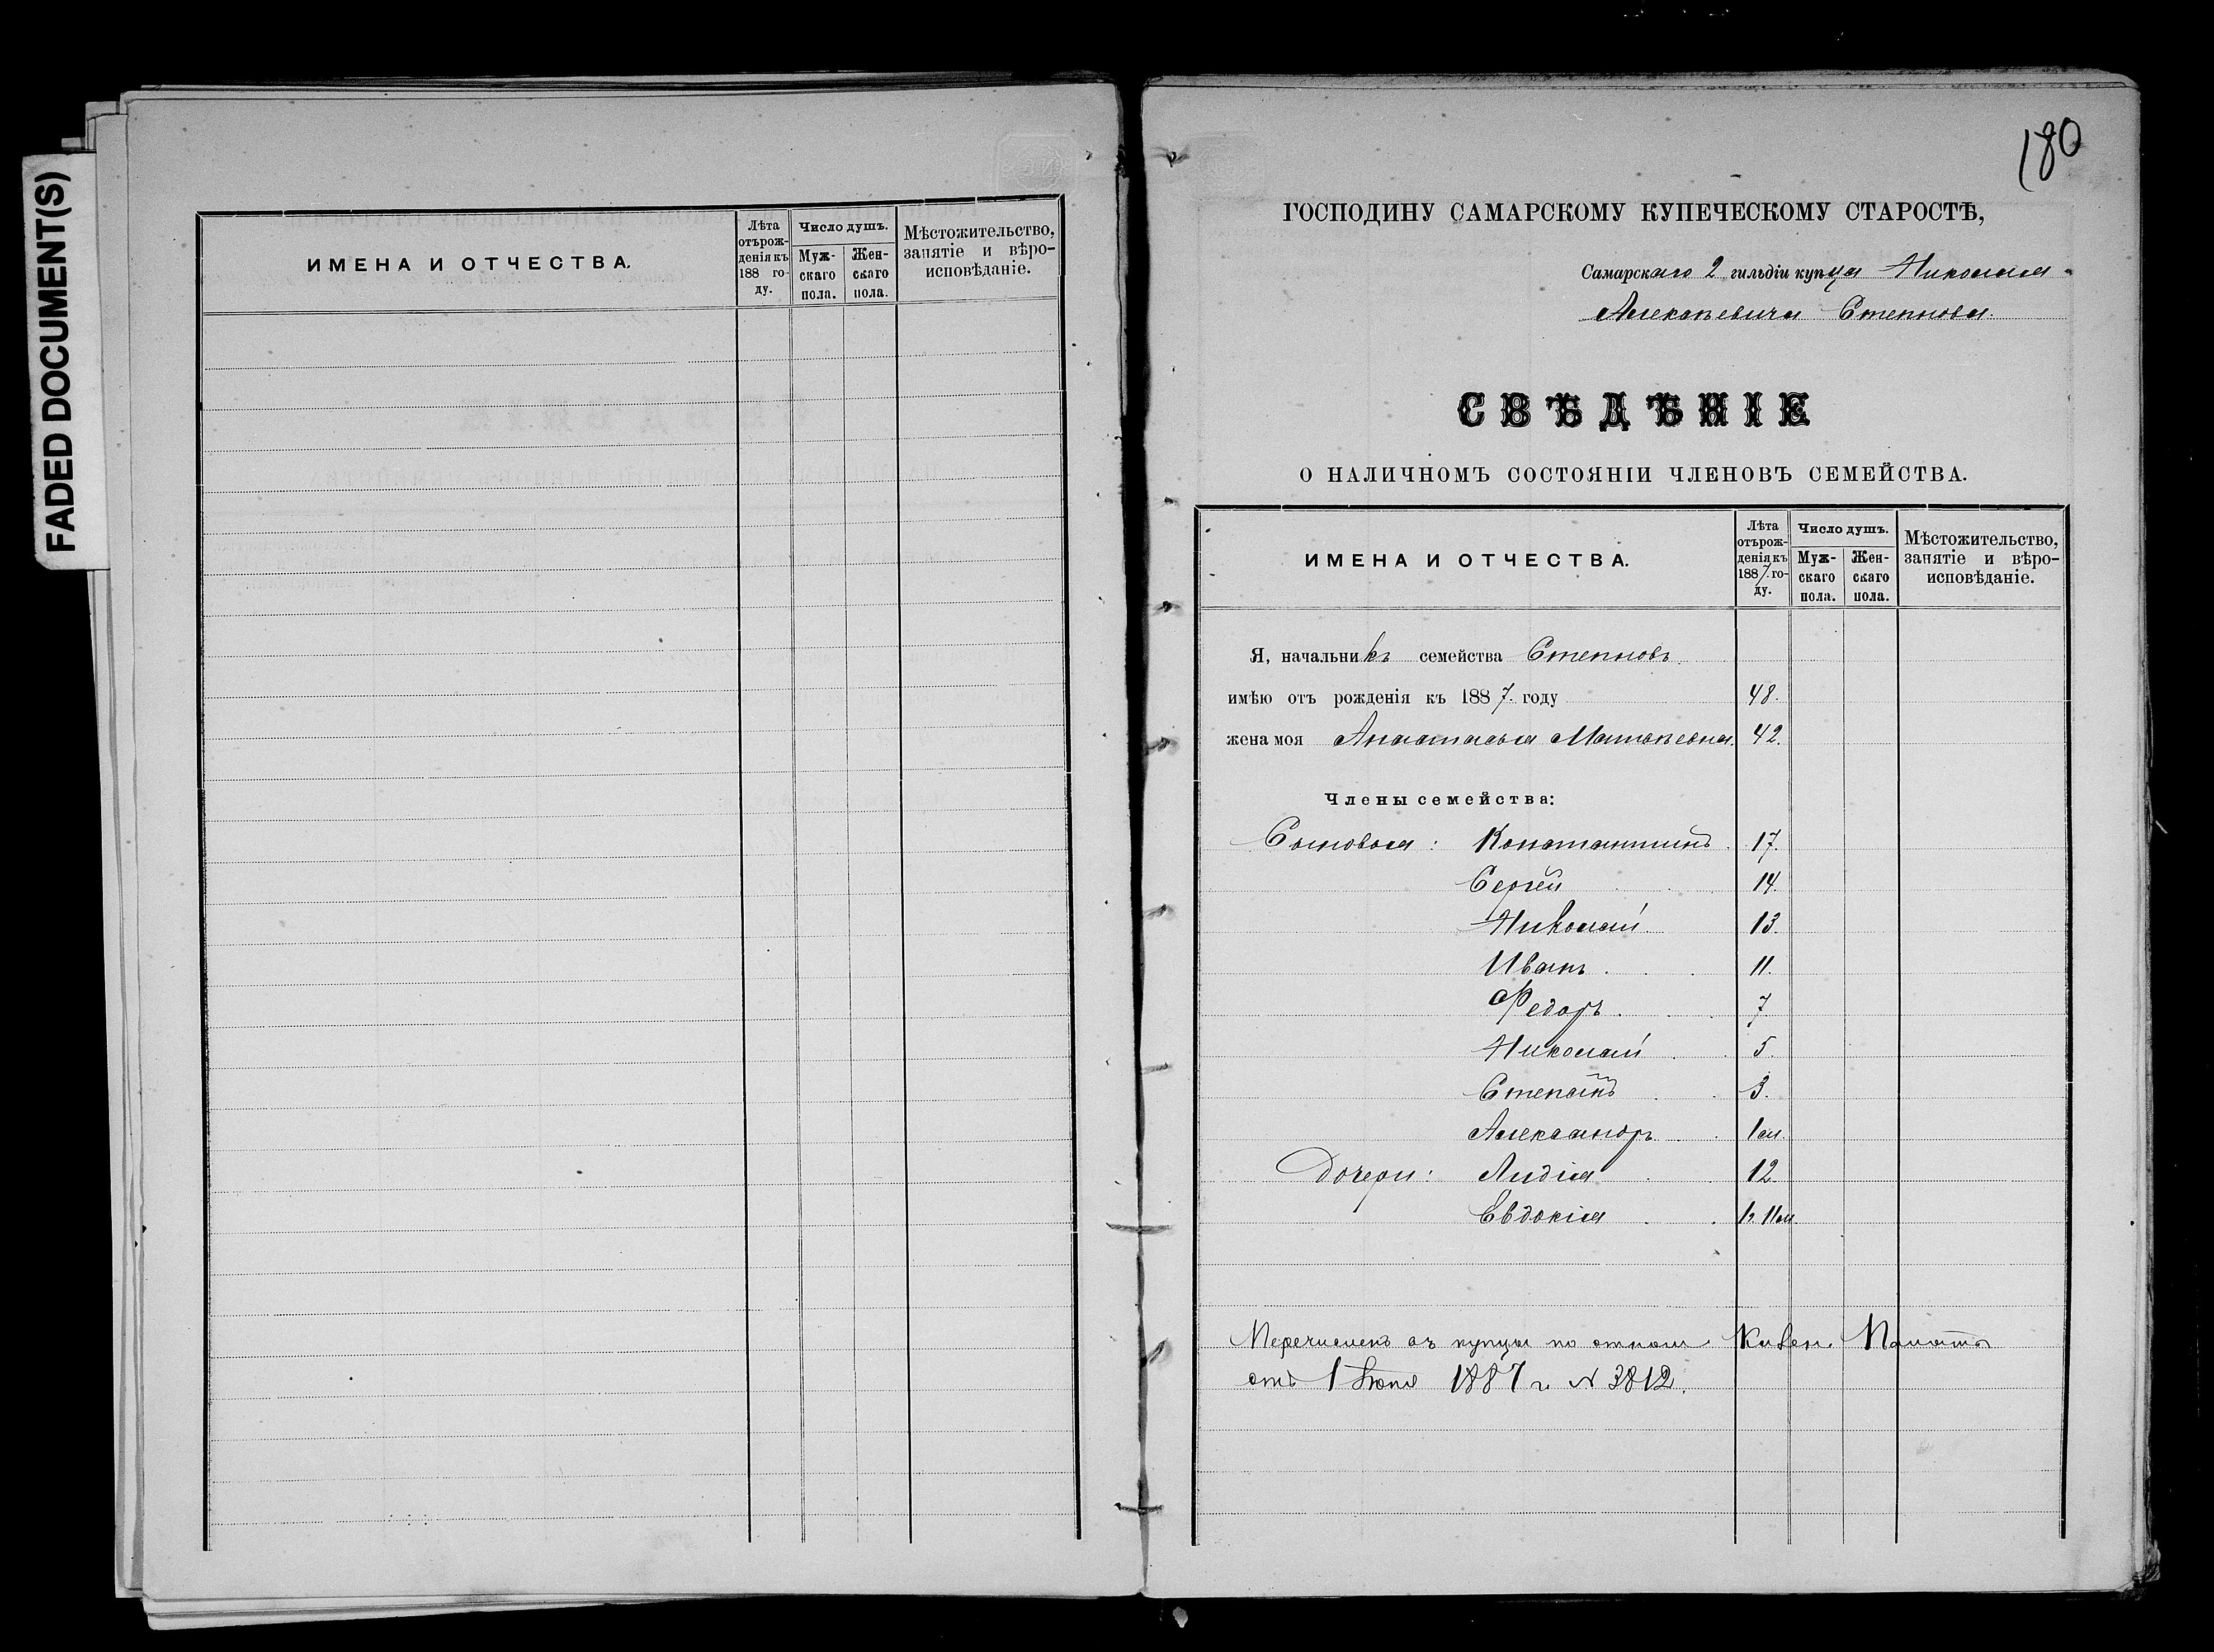 FADED DOCUMENT(S)
ИМЕНА И ОТЧЕСТВА.
Лѣта отърож-денія къ 188 го-ду.
Число душъ.
Муж-скаго пола.
Жен-скаго пола.
Мѣстожительство, занятіе и вѣро-исповѣданіе.
180
ГОСПОДИНУ САМАРСКОМУ КУПЕЧЕСКОМУ СТАРОСТѢ,
Самарскаго 2 гильдіи купца Николая
Алексѣевича Степнова.
СВѢДѢНІЕ
О НАЛИЧНОМЪ СОСТОЯНІИ ЧЛЕНОВЪ СЕМЕЙСТВА.
ИМЕНА И ОТЧЕСТВА.
Лѣта отърож-денія къ 1887. го-ду.
Число душъ.
Муж-скаго пола.
Жен-скаго пола.
Мѣстожительство, занятіе и вѣро-исповѣданіе.
Я, начальникъ семейства Степновъ.
имѣю отъ рожденія къ 1887. году 48.
жена моя Анастасья Матвѣевна. 42.
Члены семейства:
Сыновья: Константинъ. 17.
Сергѣй 14.
Николай 13.
Иванъ. 11.
Федоръ. 7
Николай 5.
Степанъ 3.
Александръ 1 м.
Дочери: Лидія 12.
Евдокія 1 г. 11 м.
Перечисленъ въ купцы по отнош. Казен. Палаты
отъ 1 Іюня 1887 г. № 3812.